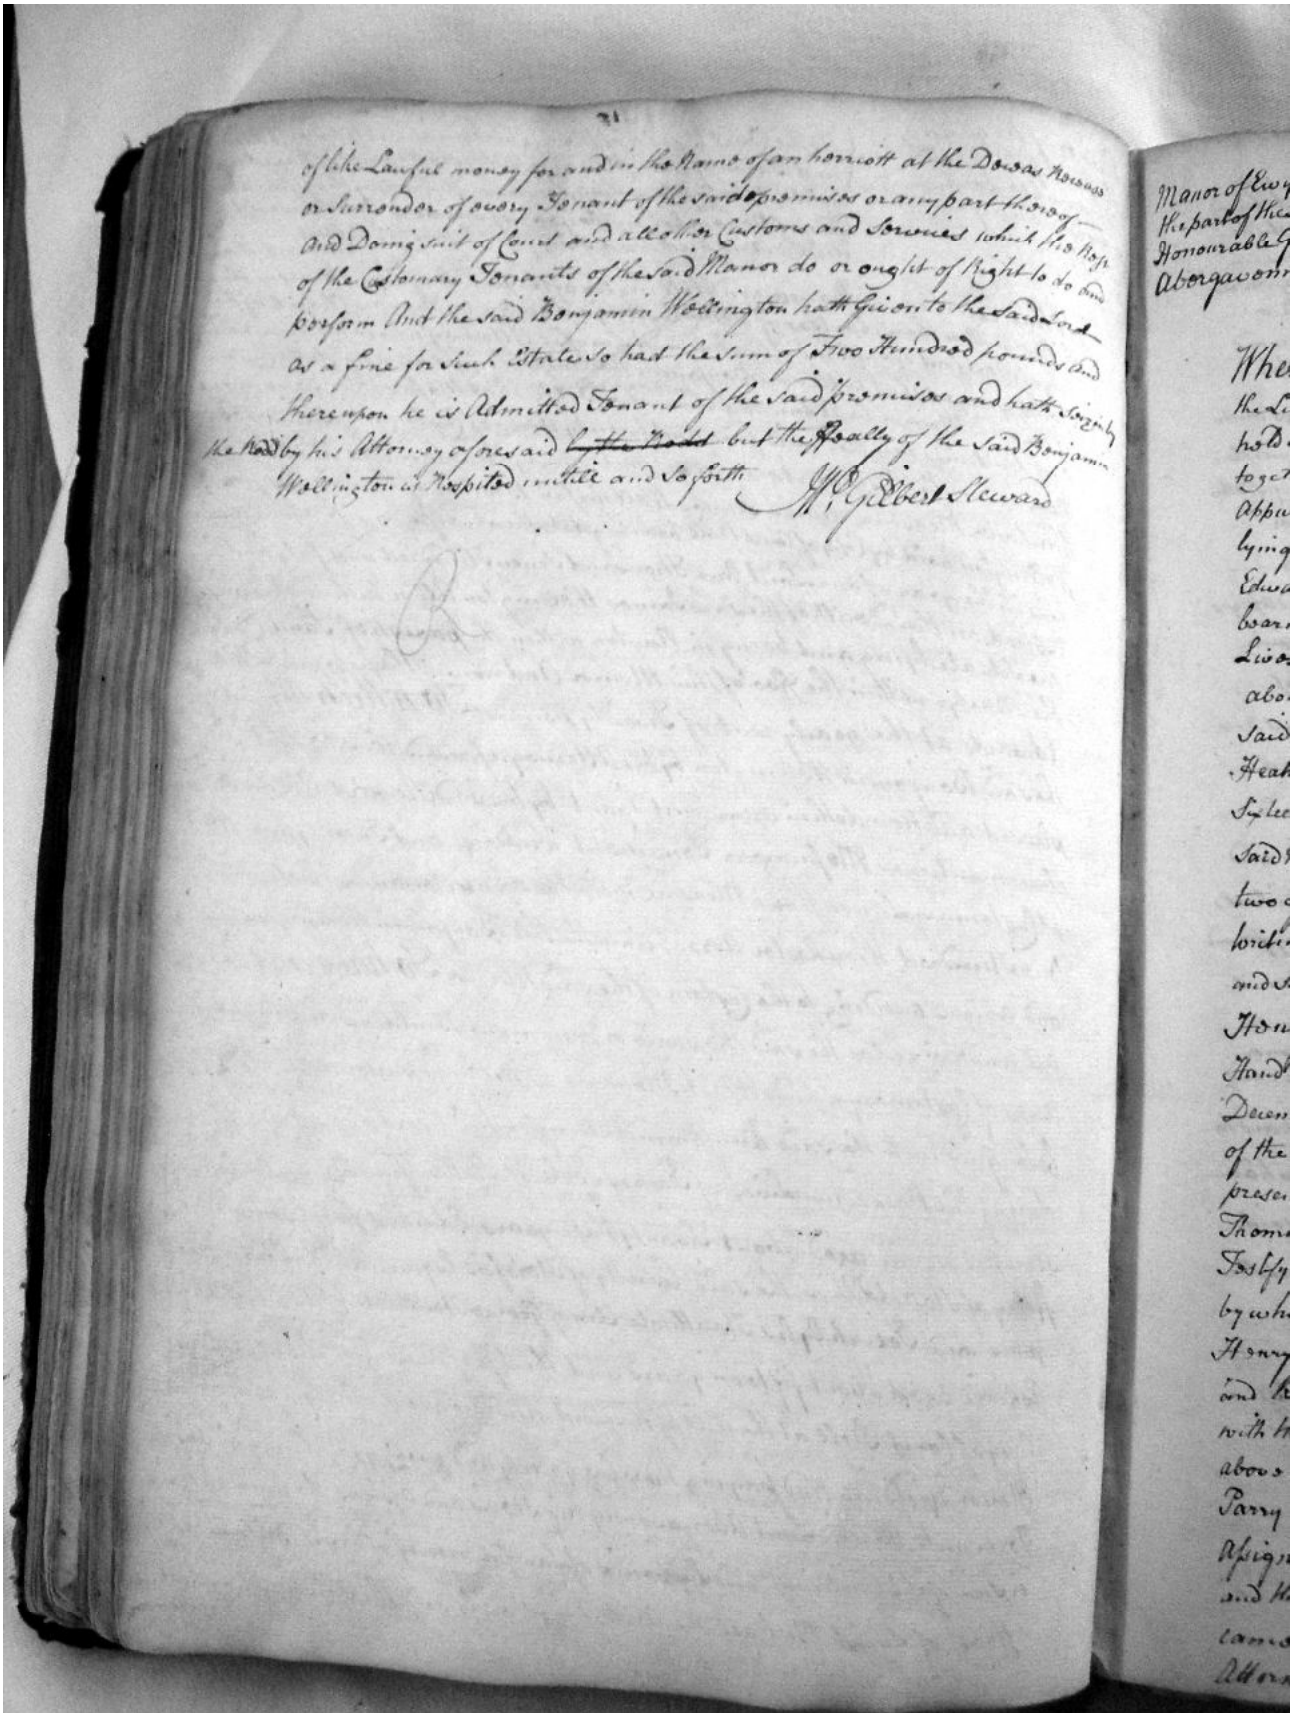 of like Lawful money for and in the Name of an herriott at the Deceas
or Surrender of every Tenant of the said premises or any part thereof
and Doing suit of Court and all other Customs and Services which the Rest
of the Customary Tenants of the said Manor do or ought of Right to do and
perform And the said Benjamin Wellington hath Given to the said Lord
as a fine for such Estate so had the sum of Two Hundred pounds and
thereupon he is Admitted Tenant of the said premises and hath Seizin by
the Rodd by his Attorney aforesaid by the Rodd but the Fealty of the said Benjamin
Wellington is Respited untill and so forth
Wm. Gilbert Steward
Manor of Ewy
the part of the
Honourable G
Abergavenn
Whe
the L
held
toget
Appu
lying
Edwa
bear
Lives
abo
said
Heah
Sixtee
said
two
writi
and s
Hen
Hand
Decem
of the
presen
Thom
Testify
by wh
Henry
and
with
above
Parry
Assign
and th
came
Attorn